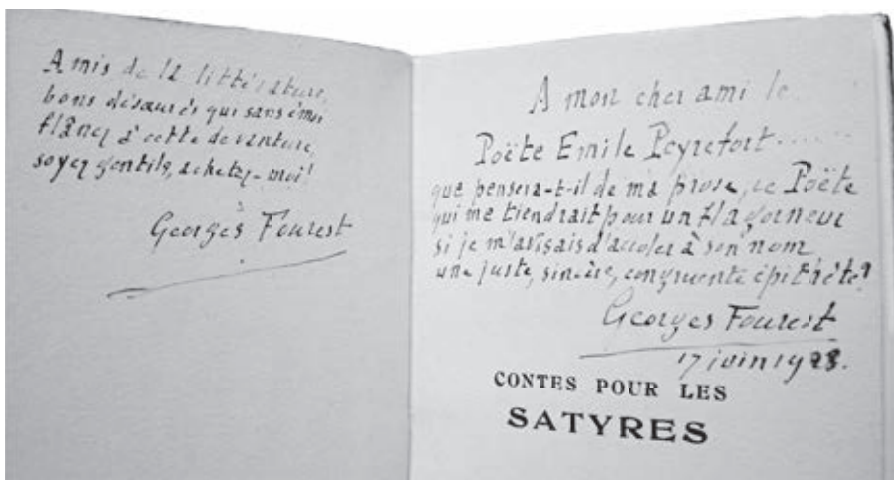 Amis de la littérature,
bons désœuvrés qui sans émoi
flânez à cette devanture,
soyez gentils, achetez-moi!
Georges Fourest
A mon cher ami le
Poëte Emile Peyrefort......
que pensera-t-il de ma prose, ce Poëte
qui me tiendrait pour un flagorneur
si je m'avisais d'accoler à son nom
une juste, sincère, congruente épithète?
Georges Fourest
17 juin 1923.
CONTES POUR LES
SATYRES